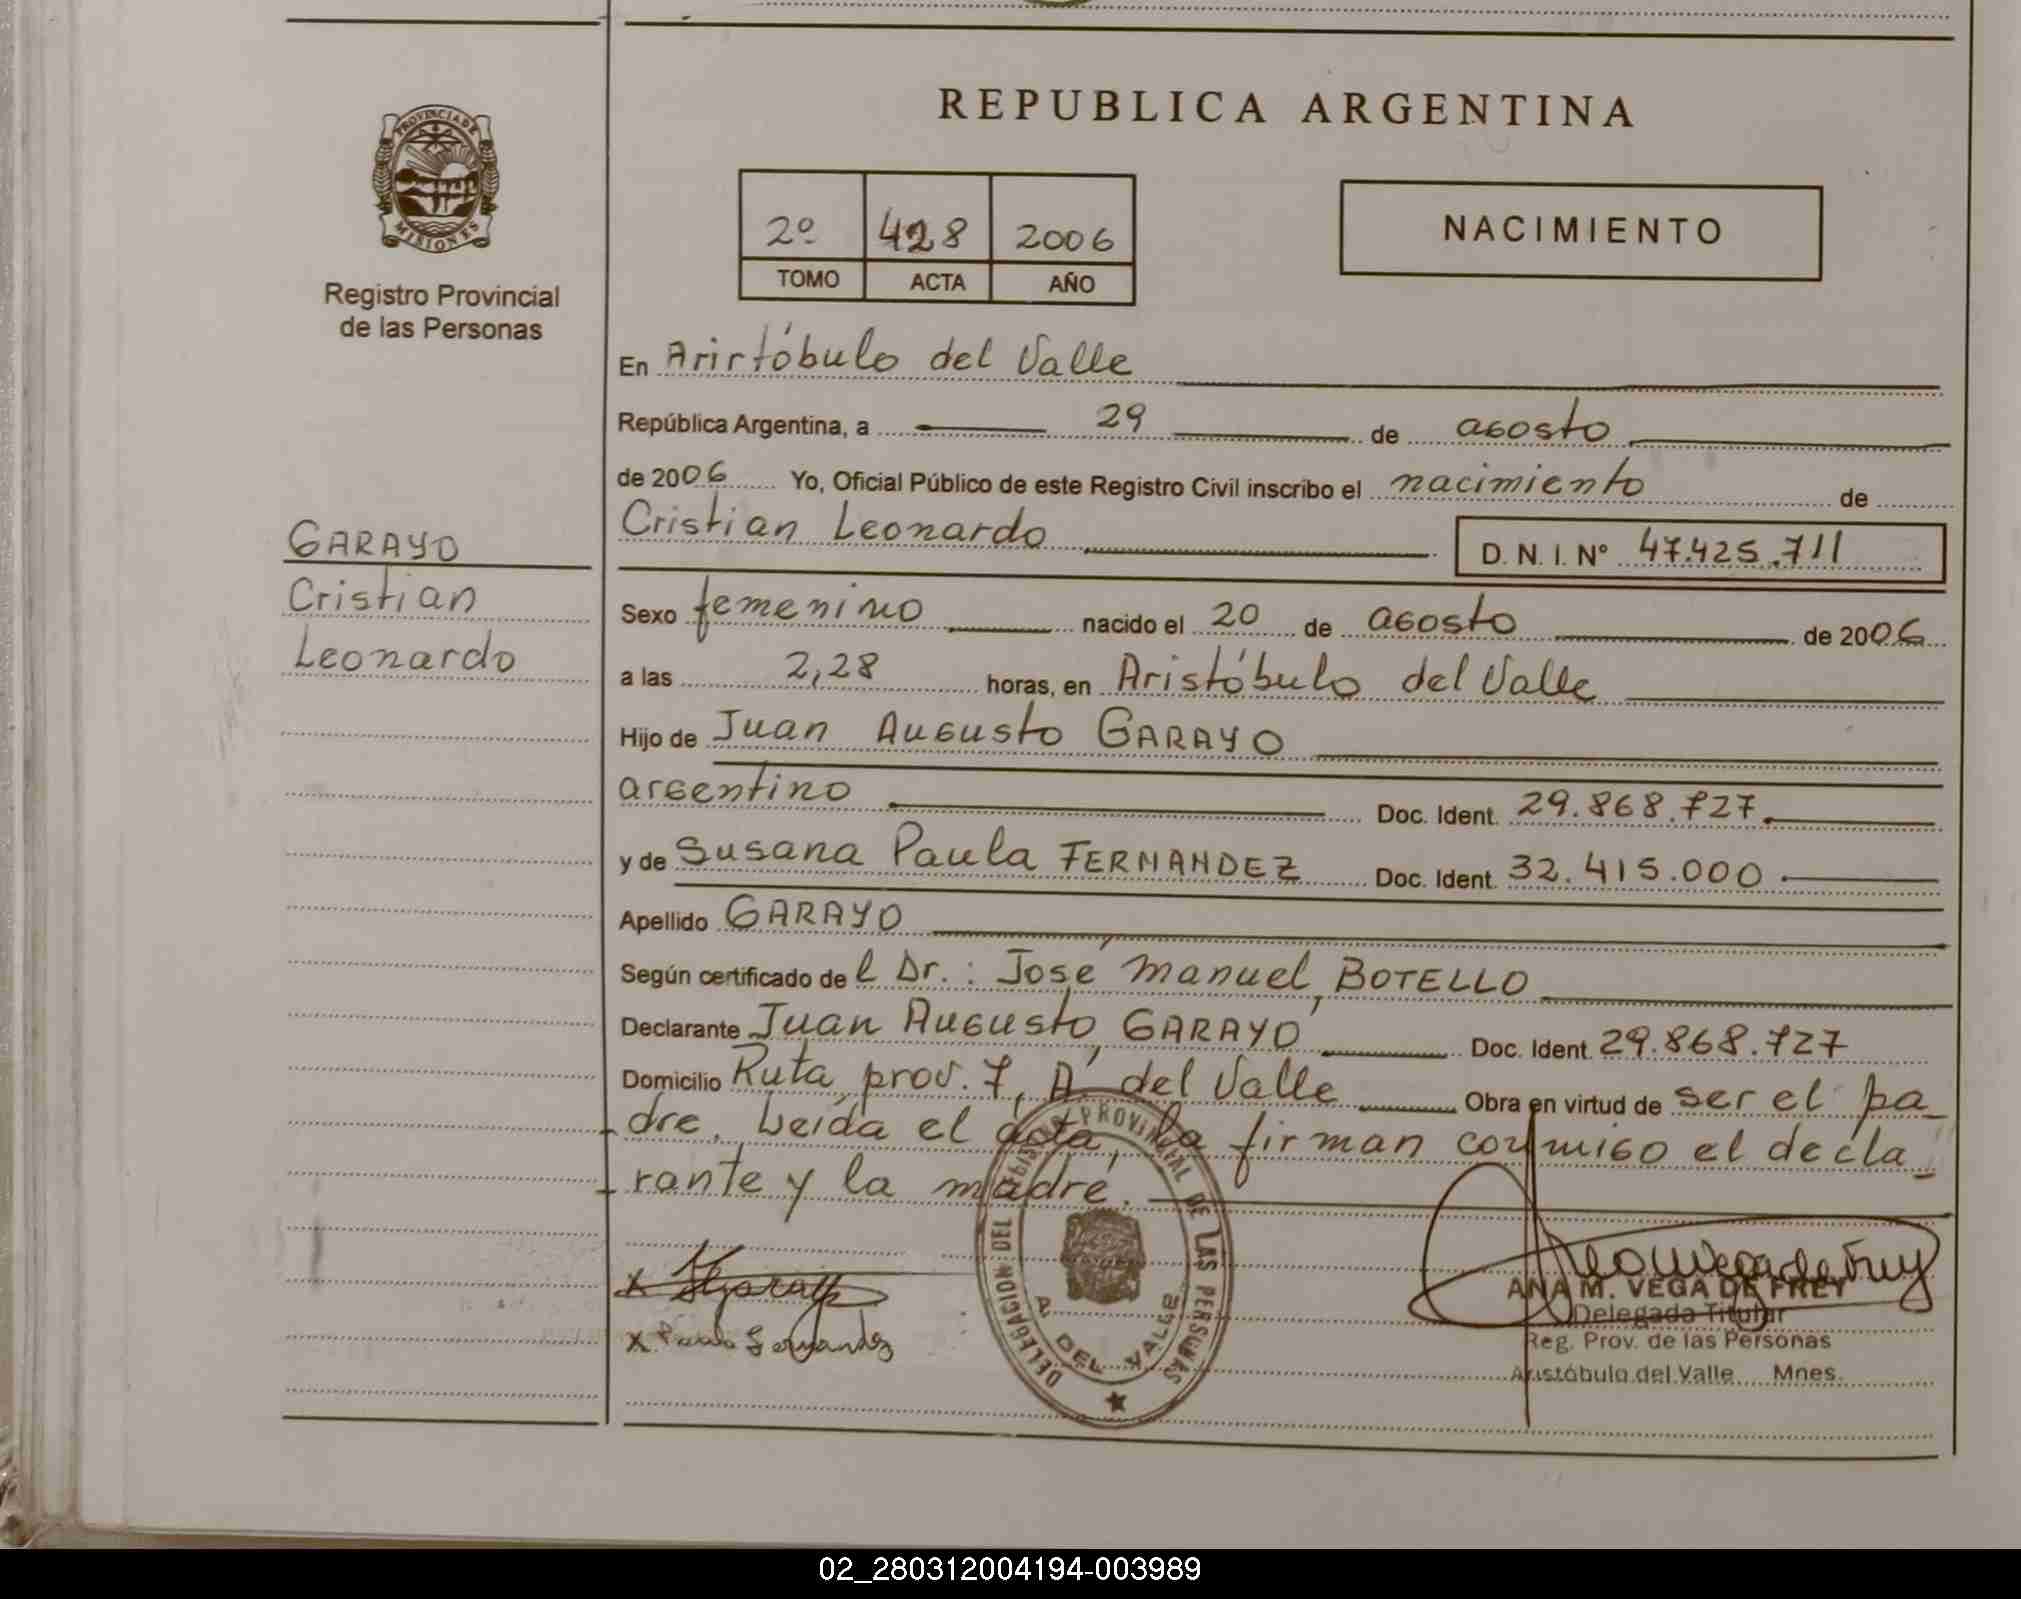 REPUBLICA ARGENTINA
PROVINCIA DE
MISIONES
Registro Provincial
de las Personas
2º 428 2006
TOMO ACTA AÑO
NACIMIENTO
En Aristóbulo del Valle
República Argentina, a 29 de agosto
de 2006 Yo, Oficial Público de este Registro Civil inscribo el nacimiento de
Cristian Leonardo D. N. I. Nº 47.425.711
GARAYO
Cristian
Leonardo
Sexo femenino nacido el 20 de agosto de 2006
a las 2,28 horas, en Aristóbulo del Valle
Hijo de Juan Augusto GARAYO
argentino Doc. Ident. 29.868.727
y de Susana Paula FERNANDEZ Doc. Ident. 32.415.000
Apellido GARAYO
Según certificado de l Dr.: José Manuel BOTELLO
Declarante Juan Augusto GARAYO Doc. Ident. 29.868.727
Domicilio Ruta prov. 7, A. del Valle Obra en virtud de ser el pa_
dre. Leída el acta, la firman conmigo el decla_
rante y la madre.
DELEGACION DEL REGISTRO PROVINCIAL DE LAS PERSONAS
A DEL VALLE
X
X Paula Fernandez
ANA M. VEGA DE FREY
Delegada Titular
Reg. Prov. de las Personas
Aristóbulo del Valle Mnes.
02_280312004194-003989